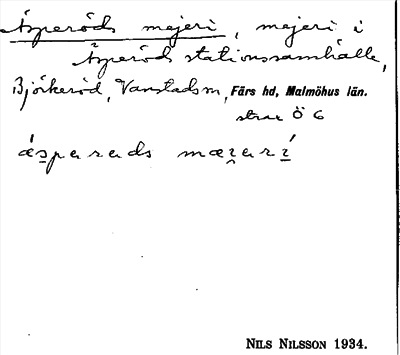 Äsperöds mejeri, mejeri i
Äsperöds stationssamhälle,
Björkeröd, Vanstads sn, Färs hd, Malmöhus län.
strax Ö G
NILS NILSSON 1934.